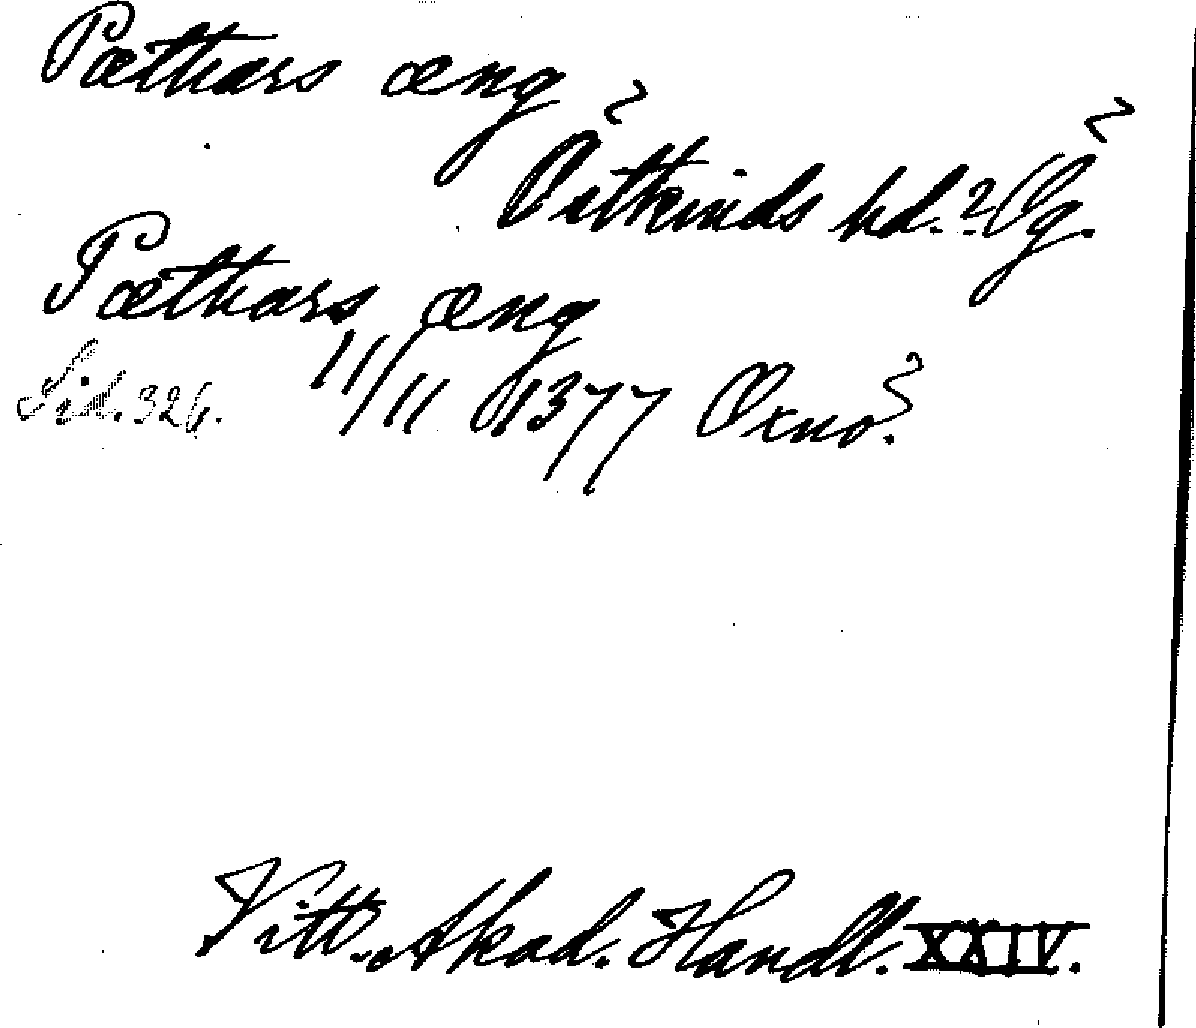 Pæthars æng
Östkinds hd.? Ög.
Pæthars æng
Sid. 326. 11/11 1377 Öxnö.
Vitt. Akad. Handl. XXIV.